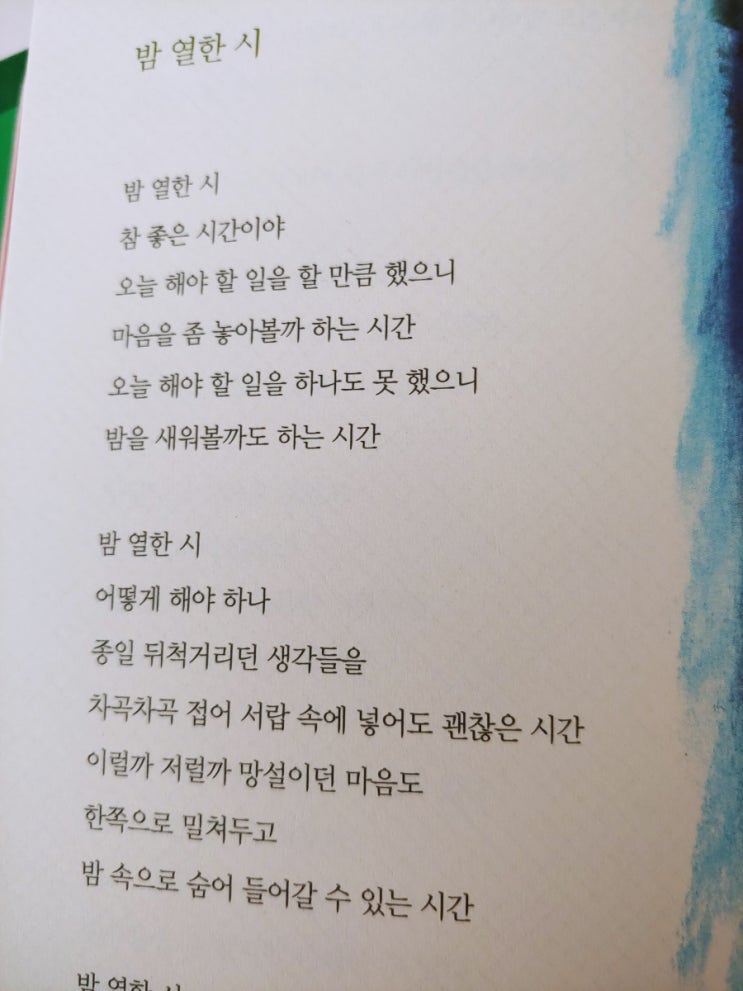 밤 열한 시
밤 열한 시
참 좋은 시간이야
오늘 해야 할 일을 할 만큼 했으니
마음을 좀 놓아볼까 하는 시간
오늘 해야 할 일을 하나도 못 했으니
밤을 새워볼까도 하는 시간
밤 열한 시
어떻게 해야 하나
종일 뒤척거리던 생각들을
차곡차곡 접어 서랍 속에 넣어도 괜찮은 시간
이럴까 저럴까 망설이던 마음도
한쪽으로 밀쳐두고
밤 속으로 숨어 들어갈 수 있는 시간
밤 열한 시